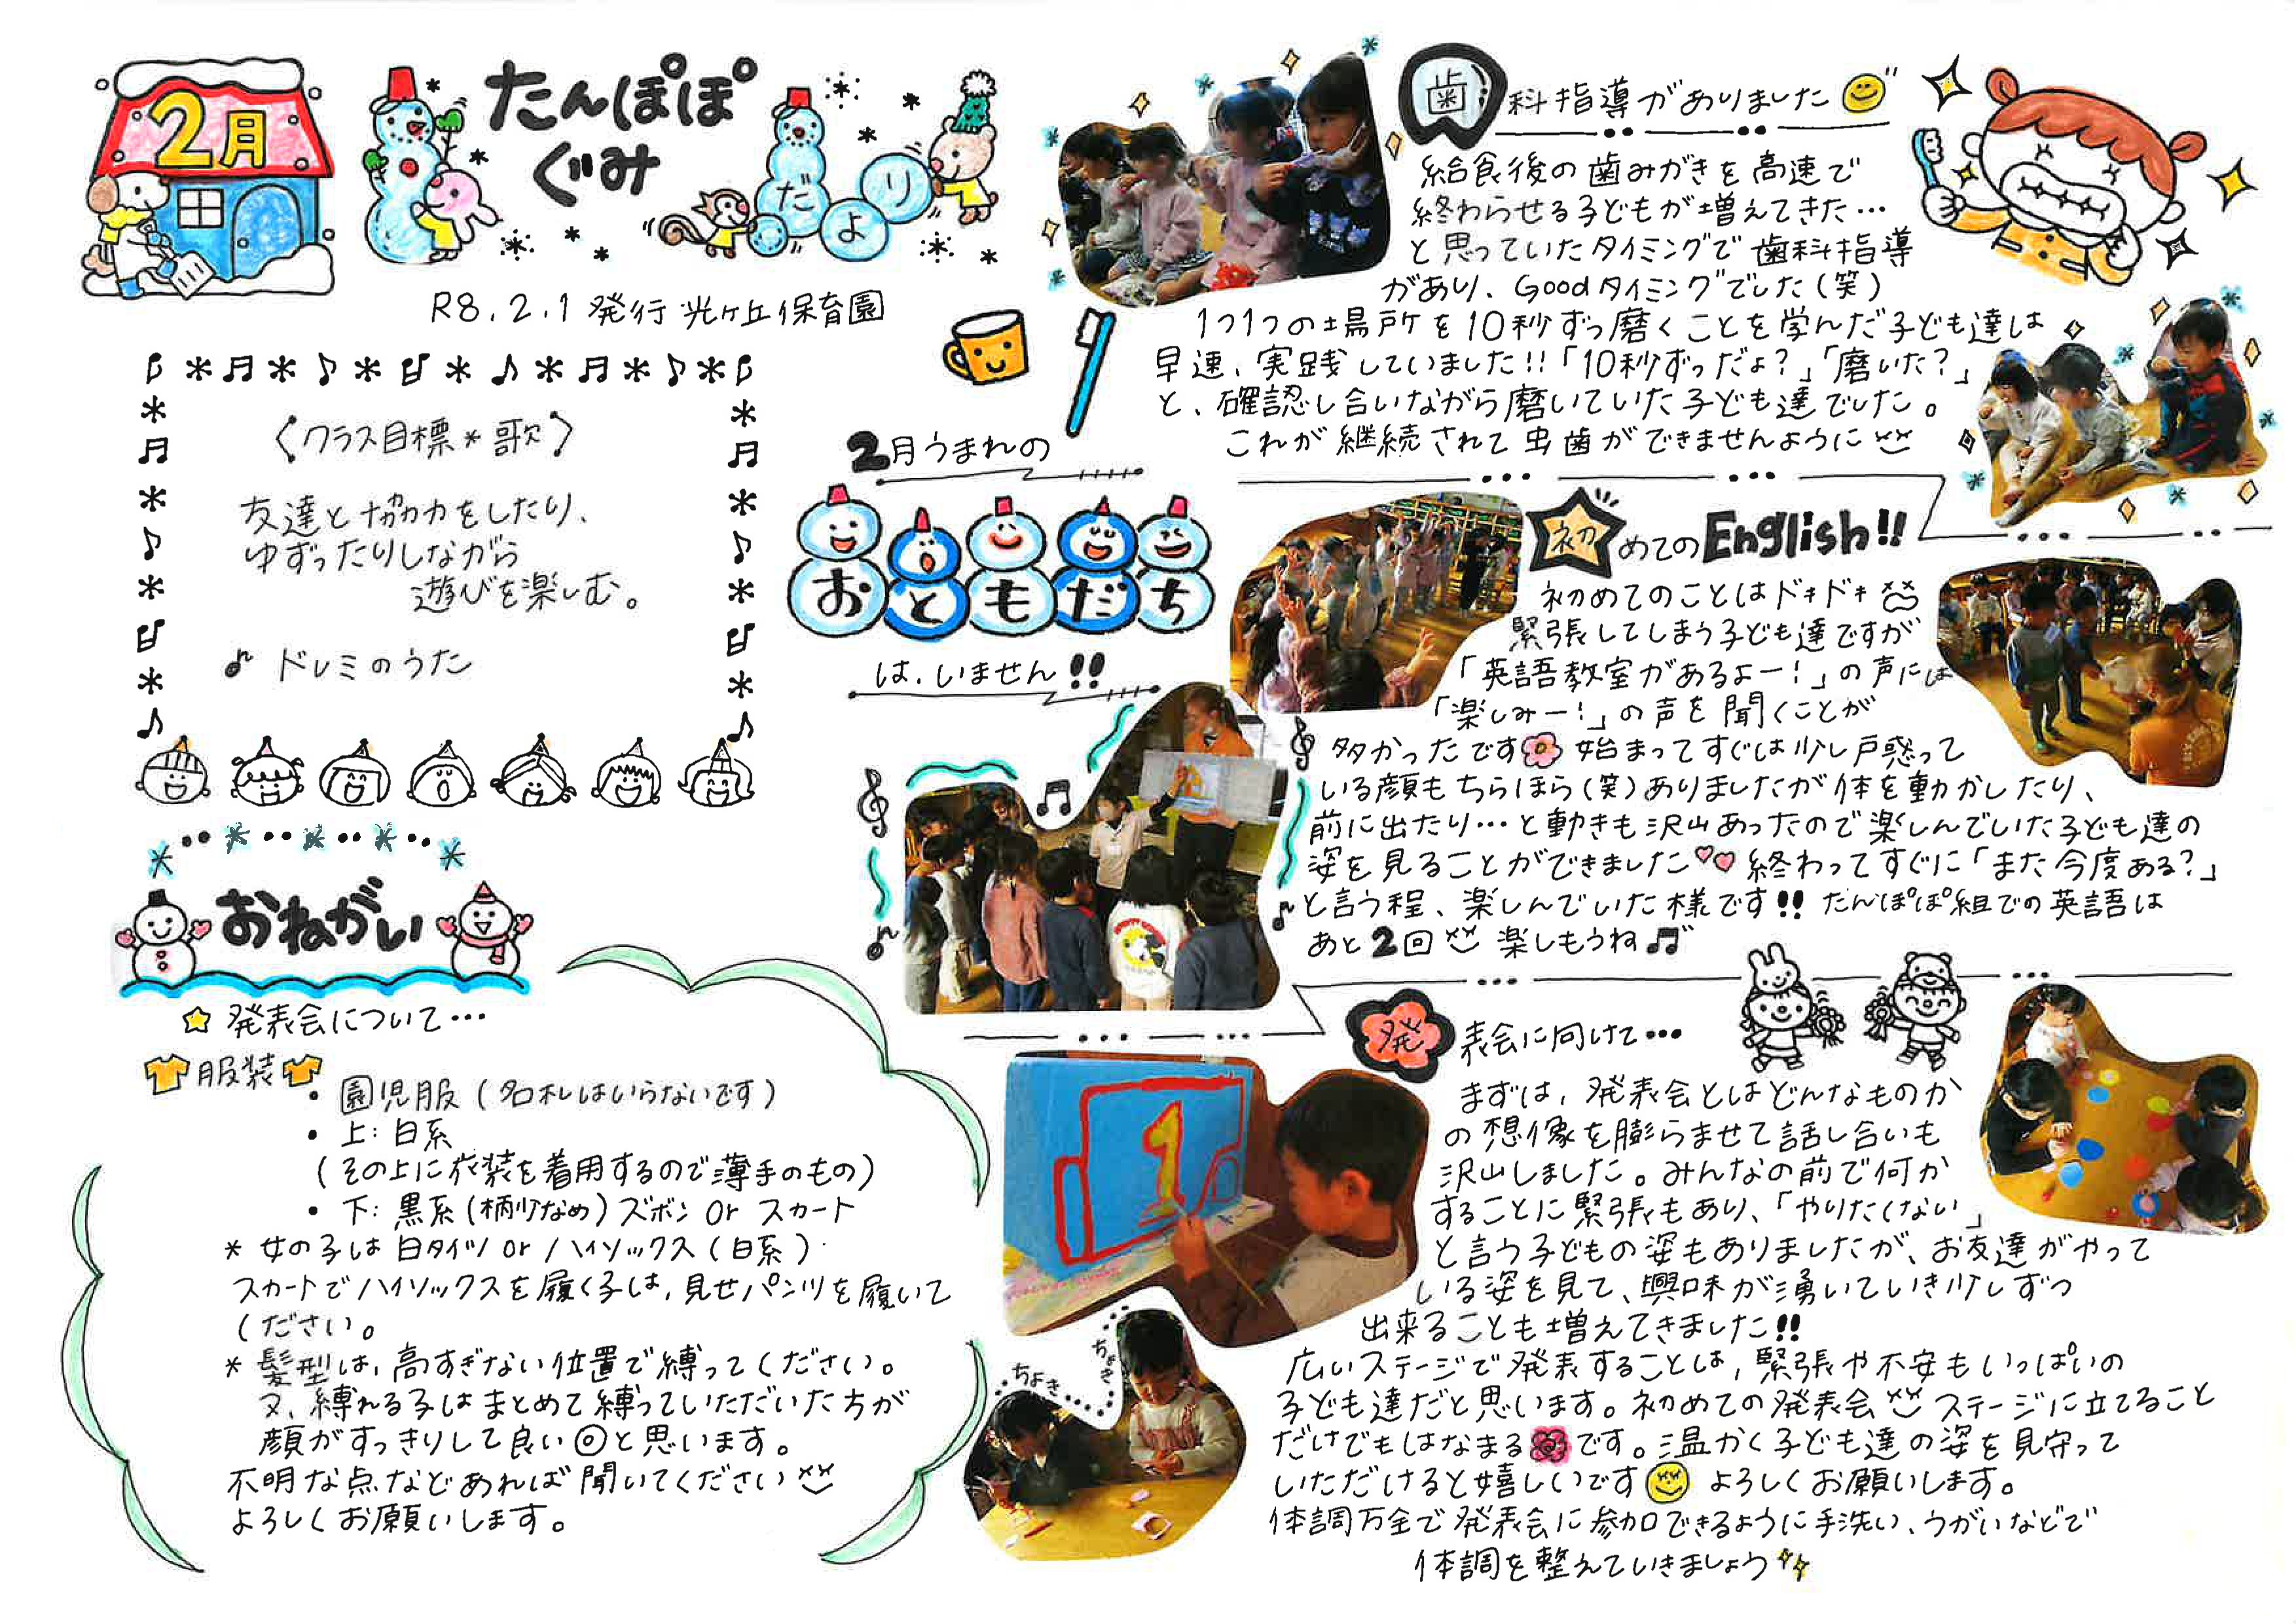 2月
たんぽぽ
ぐみ
だより
R8.2.1 発行 光ヶ丘保育園
〈クラス目標*歌〉
友達と協力をしたり、
ゆずったりしながら
遊びを楽しむ。
♪ ドレミのうた
おねがい
☆ 発表会について…
服装
・園児服(名札はいらないです)
・上:白系
(その上に衣装を着用するので薄手のもの)
・下:黒系(柄少なめ)ズボン or スカート
* 女の子は白タイツ or ハイソックス(白系)
スカートでハイソックスを履く子は、見せパンツを履いて
ください。
* 髪型は、高すぎない位置で縛ってください。
又、縛れる子はまとめて縛っていただいたちが
顔がすっきりして良い◎と思います。
不明な点などあれば聞いてください
よろしくお願いします。
2月うまれの
おともだち
は、いません!!
歯科指導がありました
給食後の歯みがきを高速で
終わらせる子どもが増えてきた…
と思っていたタイミングで歯科指導
があり、Goodタイミングでした(笑)
1つ1つの場所を10秒ずつ磨くことを学んだ子ども達は
早速、実践していました!!「10秒ずつだよ?」「磨いた?」
と、確認し合いながら磨いていた子ども達でした。
これが継続されて虫歯ができませんように
初めてのEnglish!!
初めてのことはドキドキ
緊張してしまう子ども達ですが
「英語教室があるよー!」の声には
「楽しみー!」の声を聞くことが
多かったです 始まってすぐは少し戸惑って
いる顔もちらほら(笑)ありましたが体を動かしたり、
前に出たり…と動きも沢山あったので楽しんでいた子ども達の
姿を見ることができました♡♡ 終わってすぐに「また今度ある?」
と言う程、楽しんでいた様です!! たんぽぽ組での英語は
あと2回 楽しもうね♬
発表会に向けて…
まずは、発表会とはどんなものか
の想像を膨らませて話し合いも
沢山しました。みんなの前で何か
することに緊張もあり、「やりたくない」
と言う子どもの姿もありましたが、お友達がやって
いる姿を見て、興味が湧いていき少しずつ
出来ることも増えてきました!!
広いステージで発表することは、緊張や不安もいっぱいの
子ども達だと思います。初めての発表会 ステージに立てること
だけでもはなまるです。温かく子ども達の姿を見守って
いただけると嬉しいです よろしくお願いします。
体調万全で発表会に参加できるように手洗い、うがいなどで
体調を整えていきましょう
ちょき
ちょき